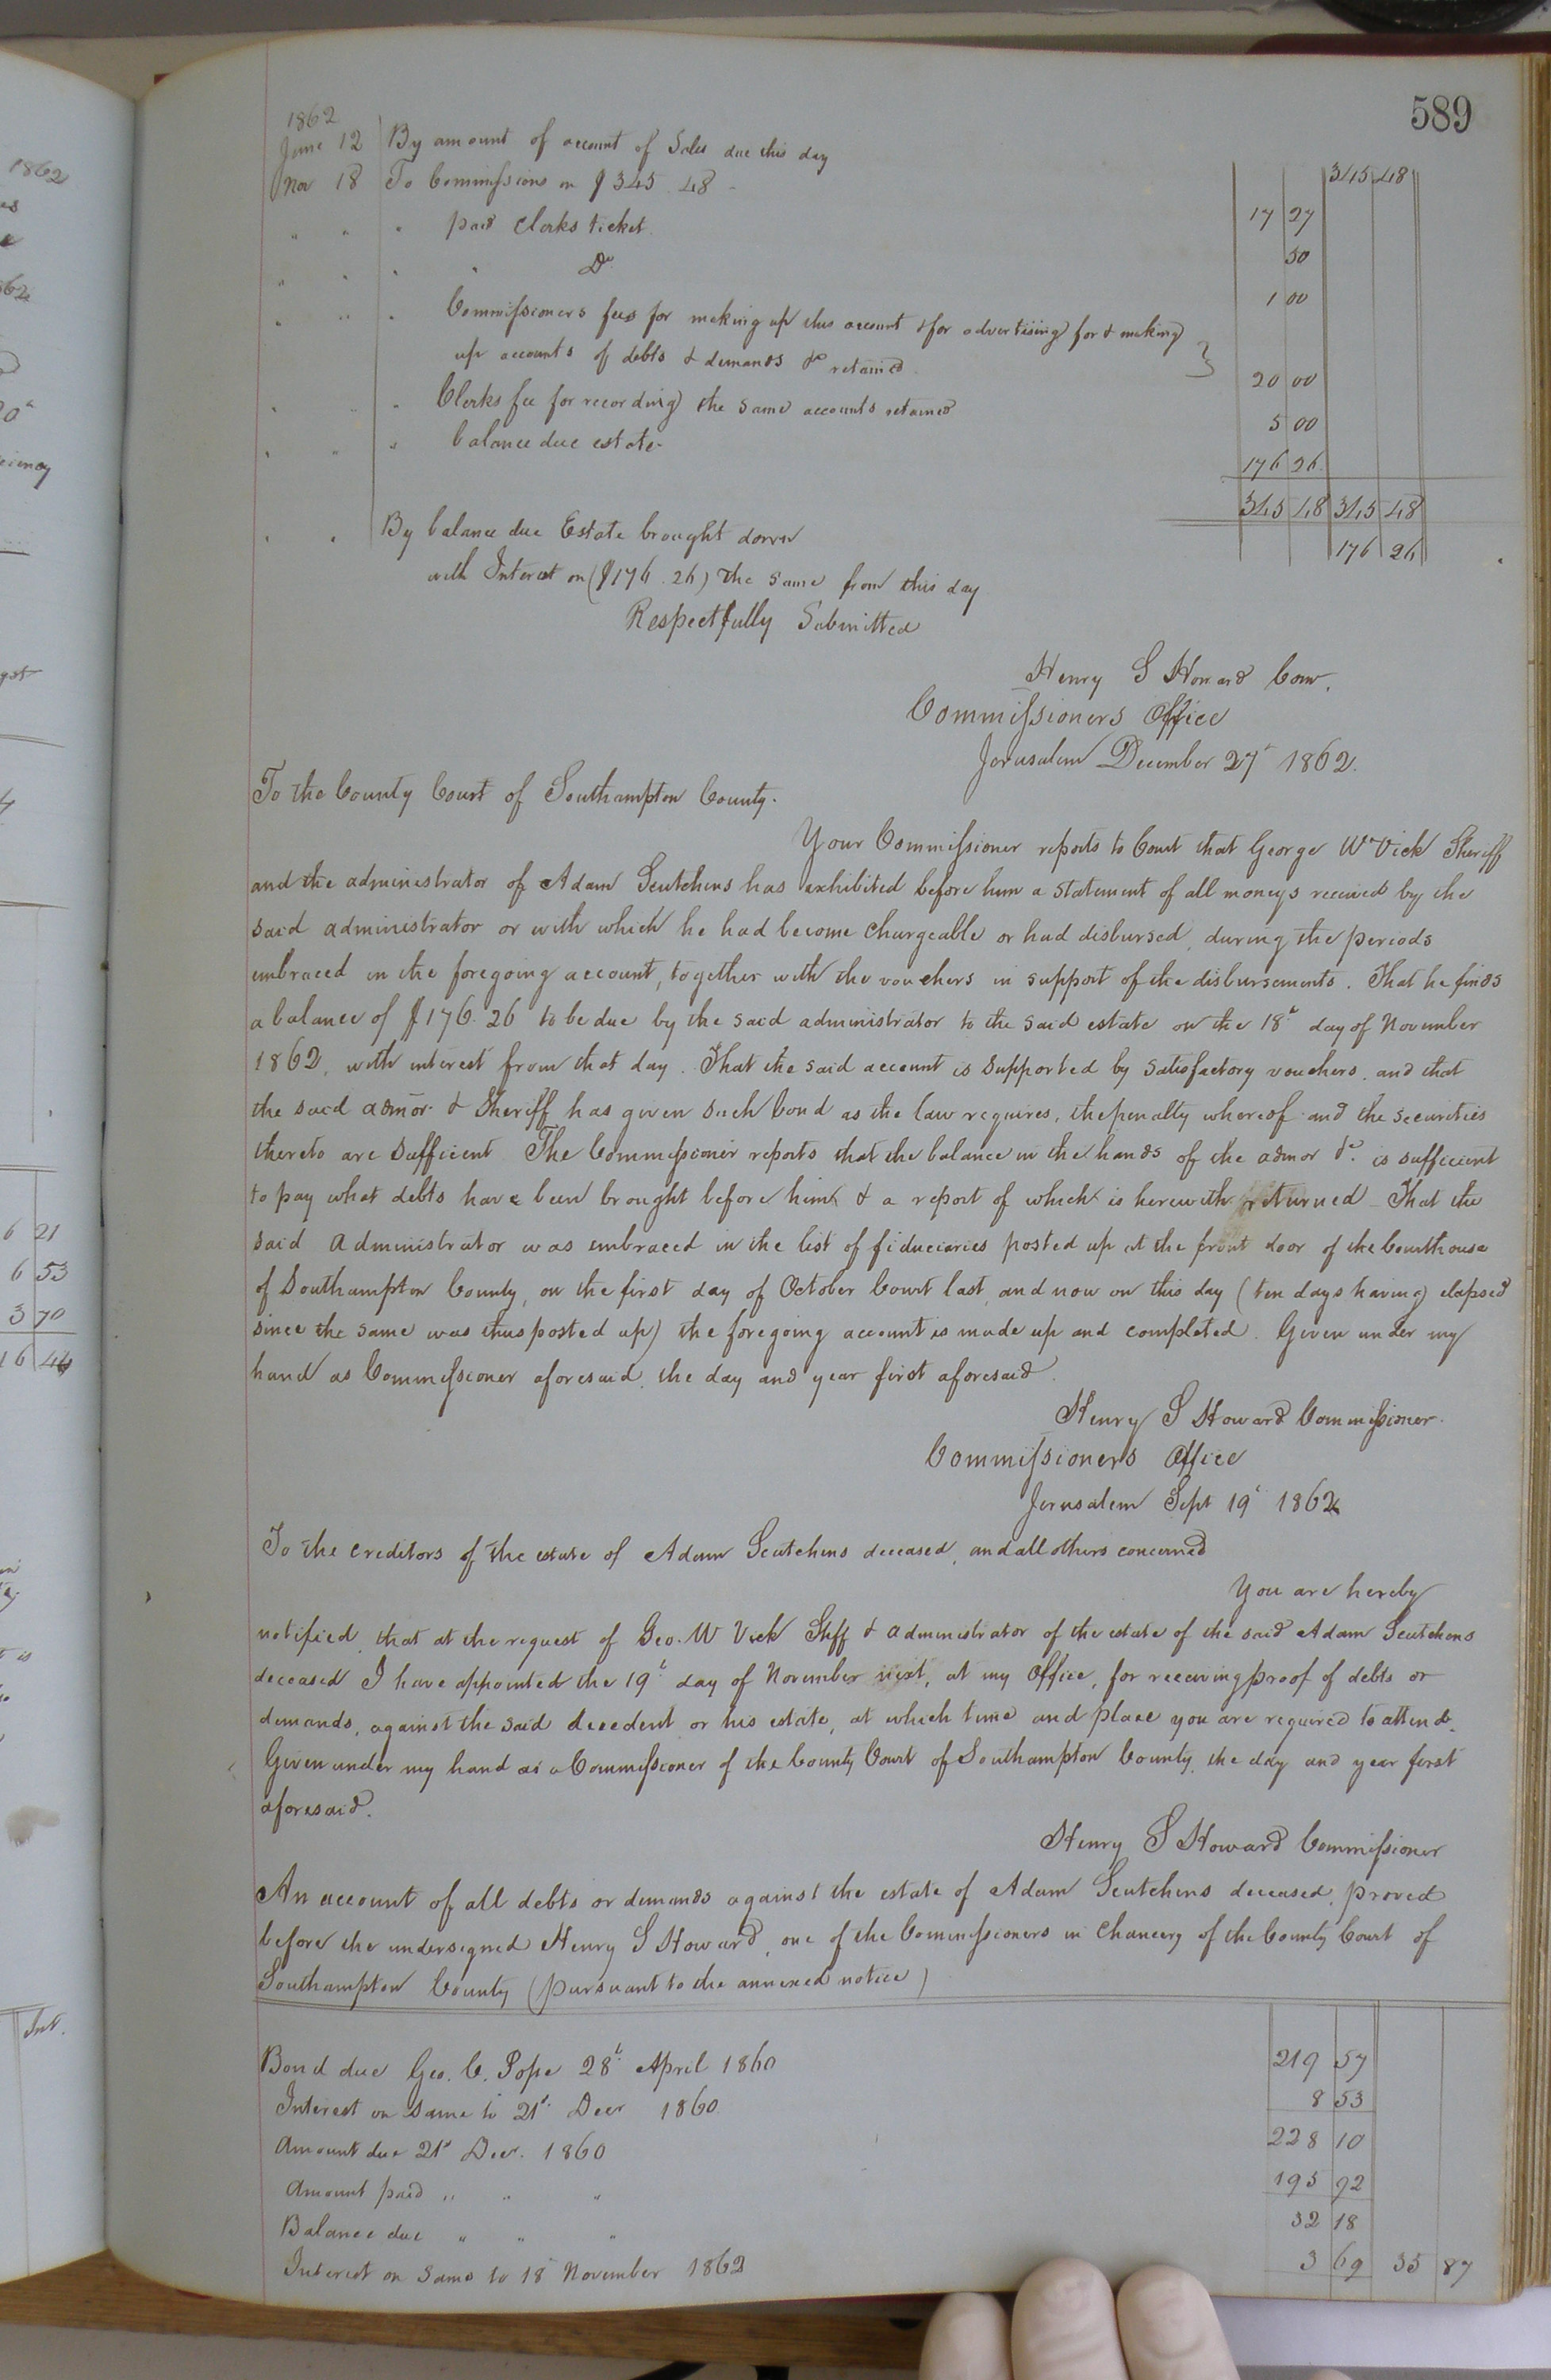 589
1862
June 12 By amount of account of Sales due this day 345 48
Nov 18 To Commissions on $345.48 - 17 27
" " " paid Clerks ticket 50
" " " " Do 1 00
" " " Commissioners fees for making up this account & for advertising for & making
up accounts of debts & demands &c retained 20 00
" " " Clerks fee for recording the same accounts retained 5 00
" " " balance due estate 176 26
345 48 345 48
" " By balance due Estate brought down 176 26
with Interest on ($176.26) the same from this day
Respectfully Submitted
Henry S Howard Com.
Commissioners Office
Jerusalem December 27t 1862.
To the County Court of Southampton County.
Your Commissioner reports to Court that George W Vick Sheriff
and the administrator of Adam Scutchens has exhibited before him a statement of all moneys received by the
said administrator or with which he had become chargeable or had disbursed, during the periods
embraced in the foregoing account, together with the vouchers in support of the disbursements. That he finds
a balance of $176.26 to be due by the said administrator to the said estate on the 18t day of November
1862, with interest from that day. That the said account is supported by satisfactory vouchers and that
the said admor & Sheriff has given such bond as the law requires, the penalty whereof and the securities
thereto are sufficient The Commissioner reports that the balance in the hands of the admor &c. is sufficient
to pay what debts have been brought before him & a report of which is herewith returned - That the
said Administrator was embraced in the list of fiduciaries posted up at the front door of the Courthouse
of Southampton County, on the first day of October Court last, and now on this day (ten days having elapsed
since the same was thus posted up) the foregoing account is made up and completed. Given under my
hand as Commissioner aforesaid, the day and year first aforesaid.
Henry S Howard Commissioner.
Commissioners Office
Jerusalem Sept 19t 1862
To the creditors of the estate of Adam Scutchens deceased, and all others concerned
You are hereby
notified, that at the request of Geo. W Vick Shff & administrator of the estate of the said Adam Scutchens
deceased I have appointed the 19t day of November next, at my Office, for receiving proof of debts or
demands, against the said decedent or his estate, at which time and place you are required to attend.
Given under my hand as a Commissioner of the County Court of Southampton County, the day and year first
aforesaid.
Henry S Howard Commissioner
An account of all debts or demands against the estate of Adam Scutchens deceased, proved
before the undersigned Henry S Howard, one of the Commissioners in Chancery of the County Court of
Southampton County (pursuant to the annexed notice)
Bond due Geo. C. Pope 28t April 1860 219 57
Interest on same to 21st Decr 1860 8 53
Amount due 21st Decr. 1860 228 10
Amount paid " " " 195 92
Balance due " " " 32 18
Interest on same to 18 November 1862 3 69 35 87
1862
6 21
6 53
3 70
16 44
Int.